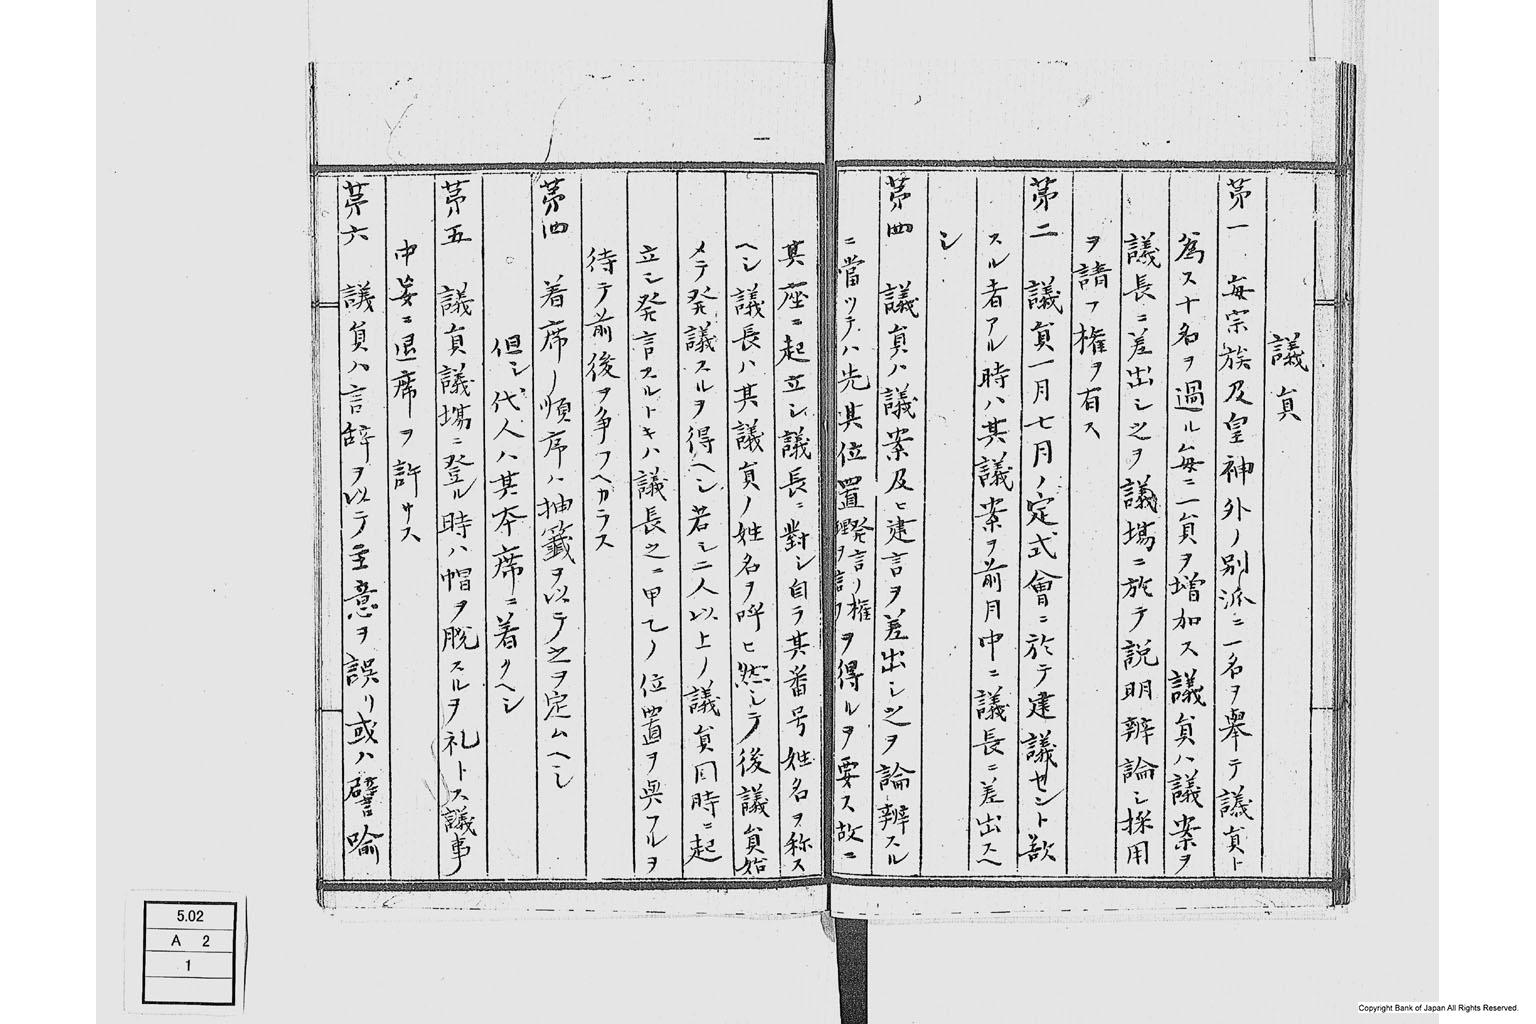 議員
第一 毎宗族及皇神外ノ別派ニ一名ヲ挙テ議員ト
為ス十名ヲ過ル毎ニ一員ヲ増加ス議員ハ議案ヲ
議長ニ差出シ之ヲ議場ニ於テ説明辨論シ採用
ヲ請フ権ヲ有ス
第二 議員一月七月ノ定式會ニ於テ建議セント欲
スル者アル時ハ其議案ヲ前月中ニ議長ニ差出スヘ
シ
第四 議員ハ議案及ヒ建言ヲ差出シ之ヲ論辨スル
ニ當ツテハ先其位置發言ノ権ヲ得ルヲ要ス故ニ
其座ニ起立シ議長ニ對シ自ラ其番号姓名ヲ称ス
ヘシ議長ハ其議員ノ姓名ヲ呼ヒ然シテ後議員始
メテ発議スルヲ得ヘシ若シ二人以上ノ議員同時ニ起
立シ発言スルトキハ議長之ニ甲乙ノ位置ヲ與フルヲ
待テ前後ヲ争フヘカラス
第四 着席ノ順序ハ抽籤ヲ以テ之ヲ定ムヘシ
但シ代人ハ其本席ニ着クヘシ
第五 議員議場ニ登ル時ハ帽ヲ脱スルヲ礼トス議事
中妄ニ退席ヲ許サス
第六 議員ハ言辞ヲ以テ主意ヲ誤リ或ハ譬喩
5.02
A 2
1
Copyright Bank of Japan All Rights Reserved.